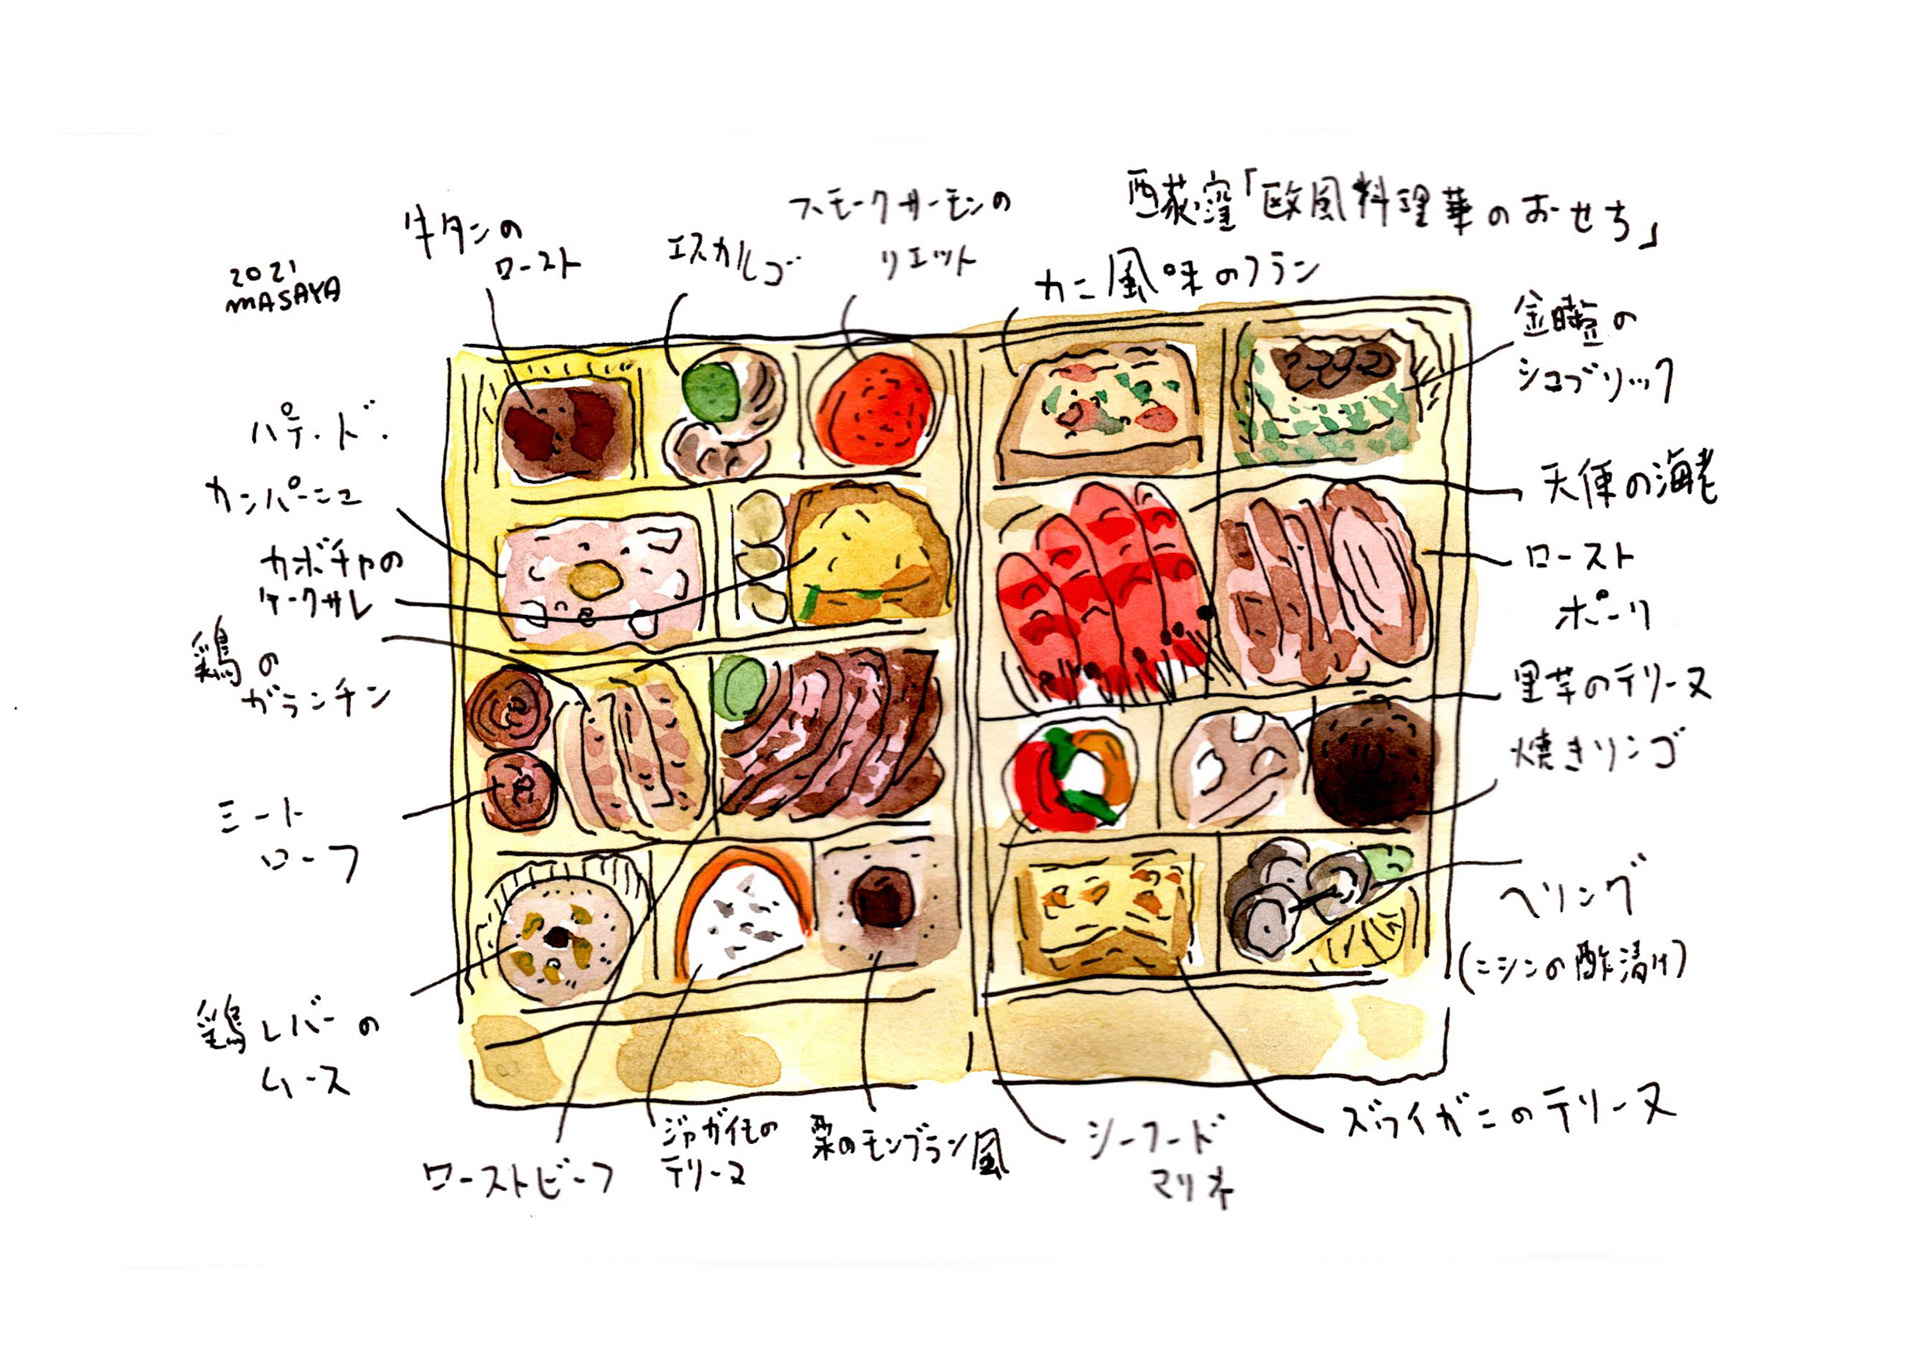 西荻窪「欧風料理華のおせち」
2021
MASAYA
牛タンの
ロースト
エスカルゴ
スモークサーモンの
リエット
カニ風味のフラン
金時豆の
シュブリック
パテ・ド・
カンパーニュ
カボチャの
ケークサレ
鶏の
ガランチン
ミート
ローフ
鶏レバーの
ムース
ローストビーフ
ジャガイモの
テリーヌ
栗のモンブラン風
天使の海老
ロースト
ポーク
里芋のテリーヌ
焼きリンゴ
ヘリング
(ニシンの酢漬け)
ズワイガニのテリーヌ
シーフード
マリネ